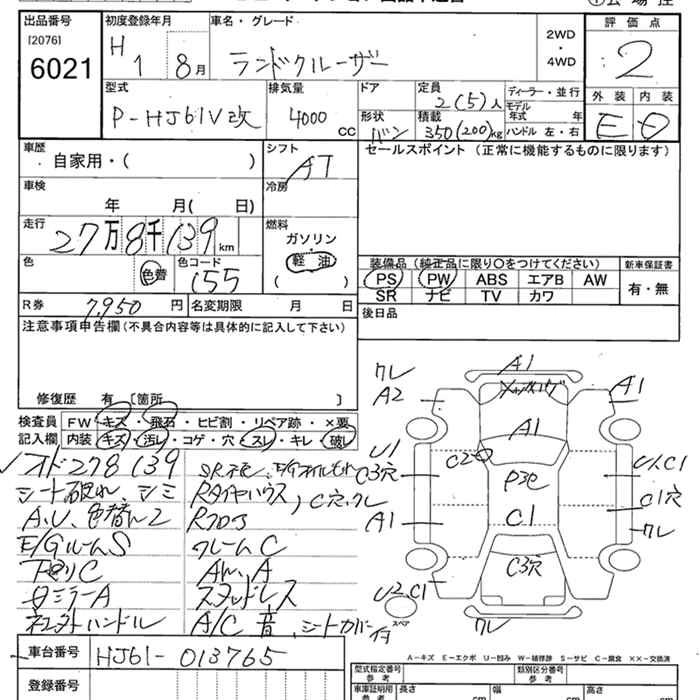 出品番号
[2076]
6021
初度登録年月
H 1 8月
車名・グレード
ランドクルーザー
2WD
・
4WD
評価点
2
型式
P-HJ61V改
排気量
4000 CC
ドア
形状
バン
定員
2(5)人
積載
350(200)kg
ディーラー・並行
モデル年式 年
ハンドル 左・右
外装 内装
E D
車歴
自家用・( )
シフト
AT
セールスポイント(正常に機能するものに限ります)
車検
年 月( 日)
冷房
走行
27万8千139km
燃料
ガソリン
軽油
( )
色
色替
色コード
155
装備品(純正品に限り○をつけてください)
PS PW ABS エアB AW
SR ナビ TV カワ
新車保証書
有・無
R券 7,950 円
名変期限 月 日
後日品
注意事項申告欄(不具合内容等は具体的に記入して下さい)
修復歴 有 [箇所 ]
検査員記入欄
FW キズ・飛石・ヒビ割・リペア跡・×要
内装 キズ・汚レ・コゲ・穴・スレ・キレ・破レ
オド278139
シート破れ、シミ
A.U、色替ムラ
E/GルームS
下廻りC
ミラーA
社外ハンドル
Rタイヤハウス、C穴、クレ
Rフロア
クレームC
スタッドレス
A/C 音、シートカバー
クレ
A2
A1
A1
A1
U1
C3穴
A1
C2
P3色
C1
C3穴
U1.C1
C1穴
クレ
U2.C1
スペア
クレ
A-キズ E-エクボ U-凹み W-補修跡 S-サビ C-腐食 ××-交換済
車台番号
HJ61-013765
登録番号
型式指定番号
参考
類別区分番号
参考
車庫証明用
参考
長さ cm
幅 cm
高さ cm